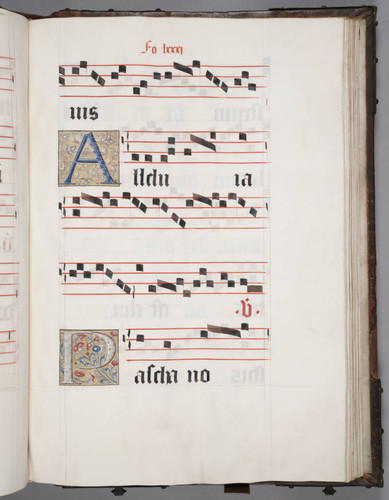 Fo lxxxj
nis
Allelu ia
.V.
Pascha no